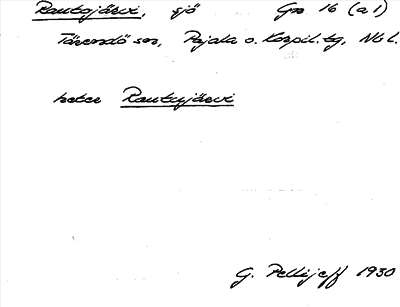 Rautajärvi, sjö Gn 16 (a1)
Tärendö sn, Pajala o. Korpil. tg, Nb l.
heter Rautajärvi
G. Pellijeff 1930